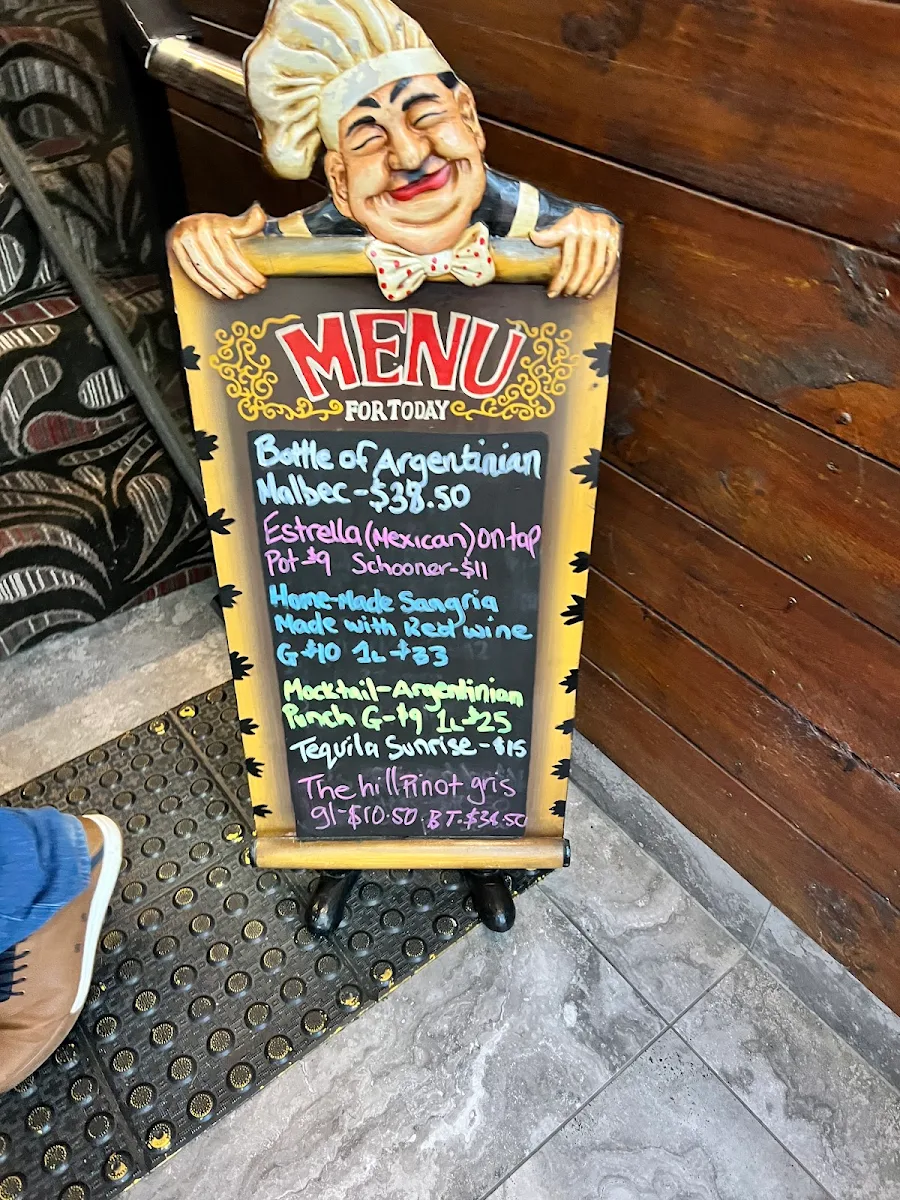 MENU
FOR TODAY
Bottle of Argentinian
Malbec-$38.50
Estrella (Mexican) on tap
Pot-$9 Schooner-$11
Home-Made Sangria
Made with Red wine
G $10 1L-$33
Mocktail-Argentinian
Punch G-$9 1L-$25
Tequila Sunrise-$15
The hill Pinot gris
gl-$10.50 BT-$34.50